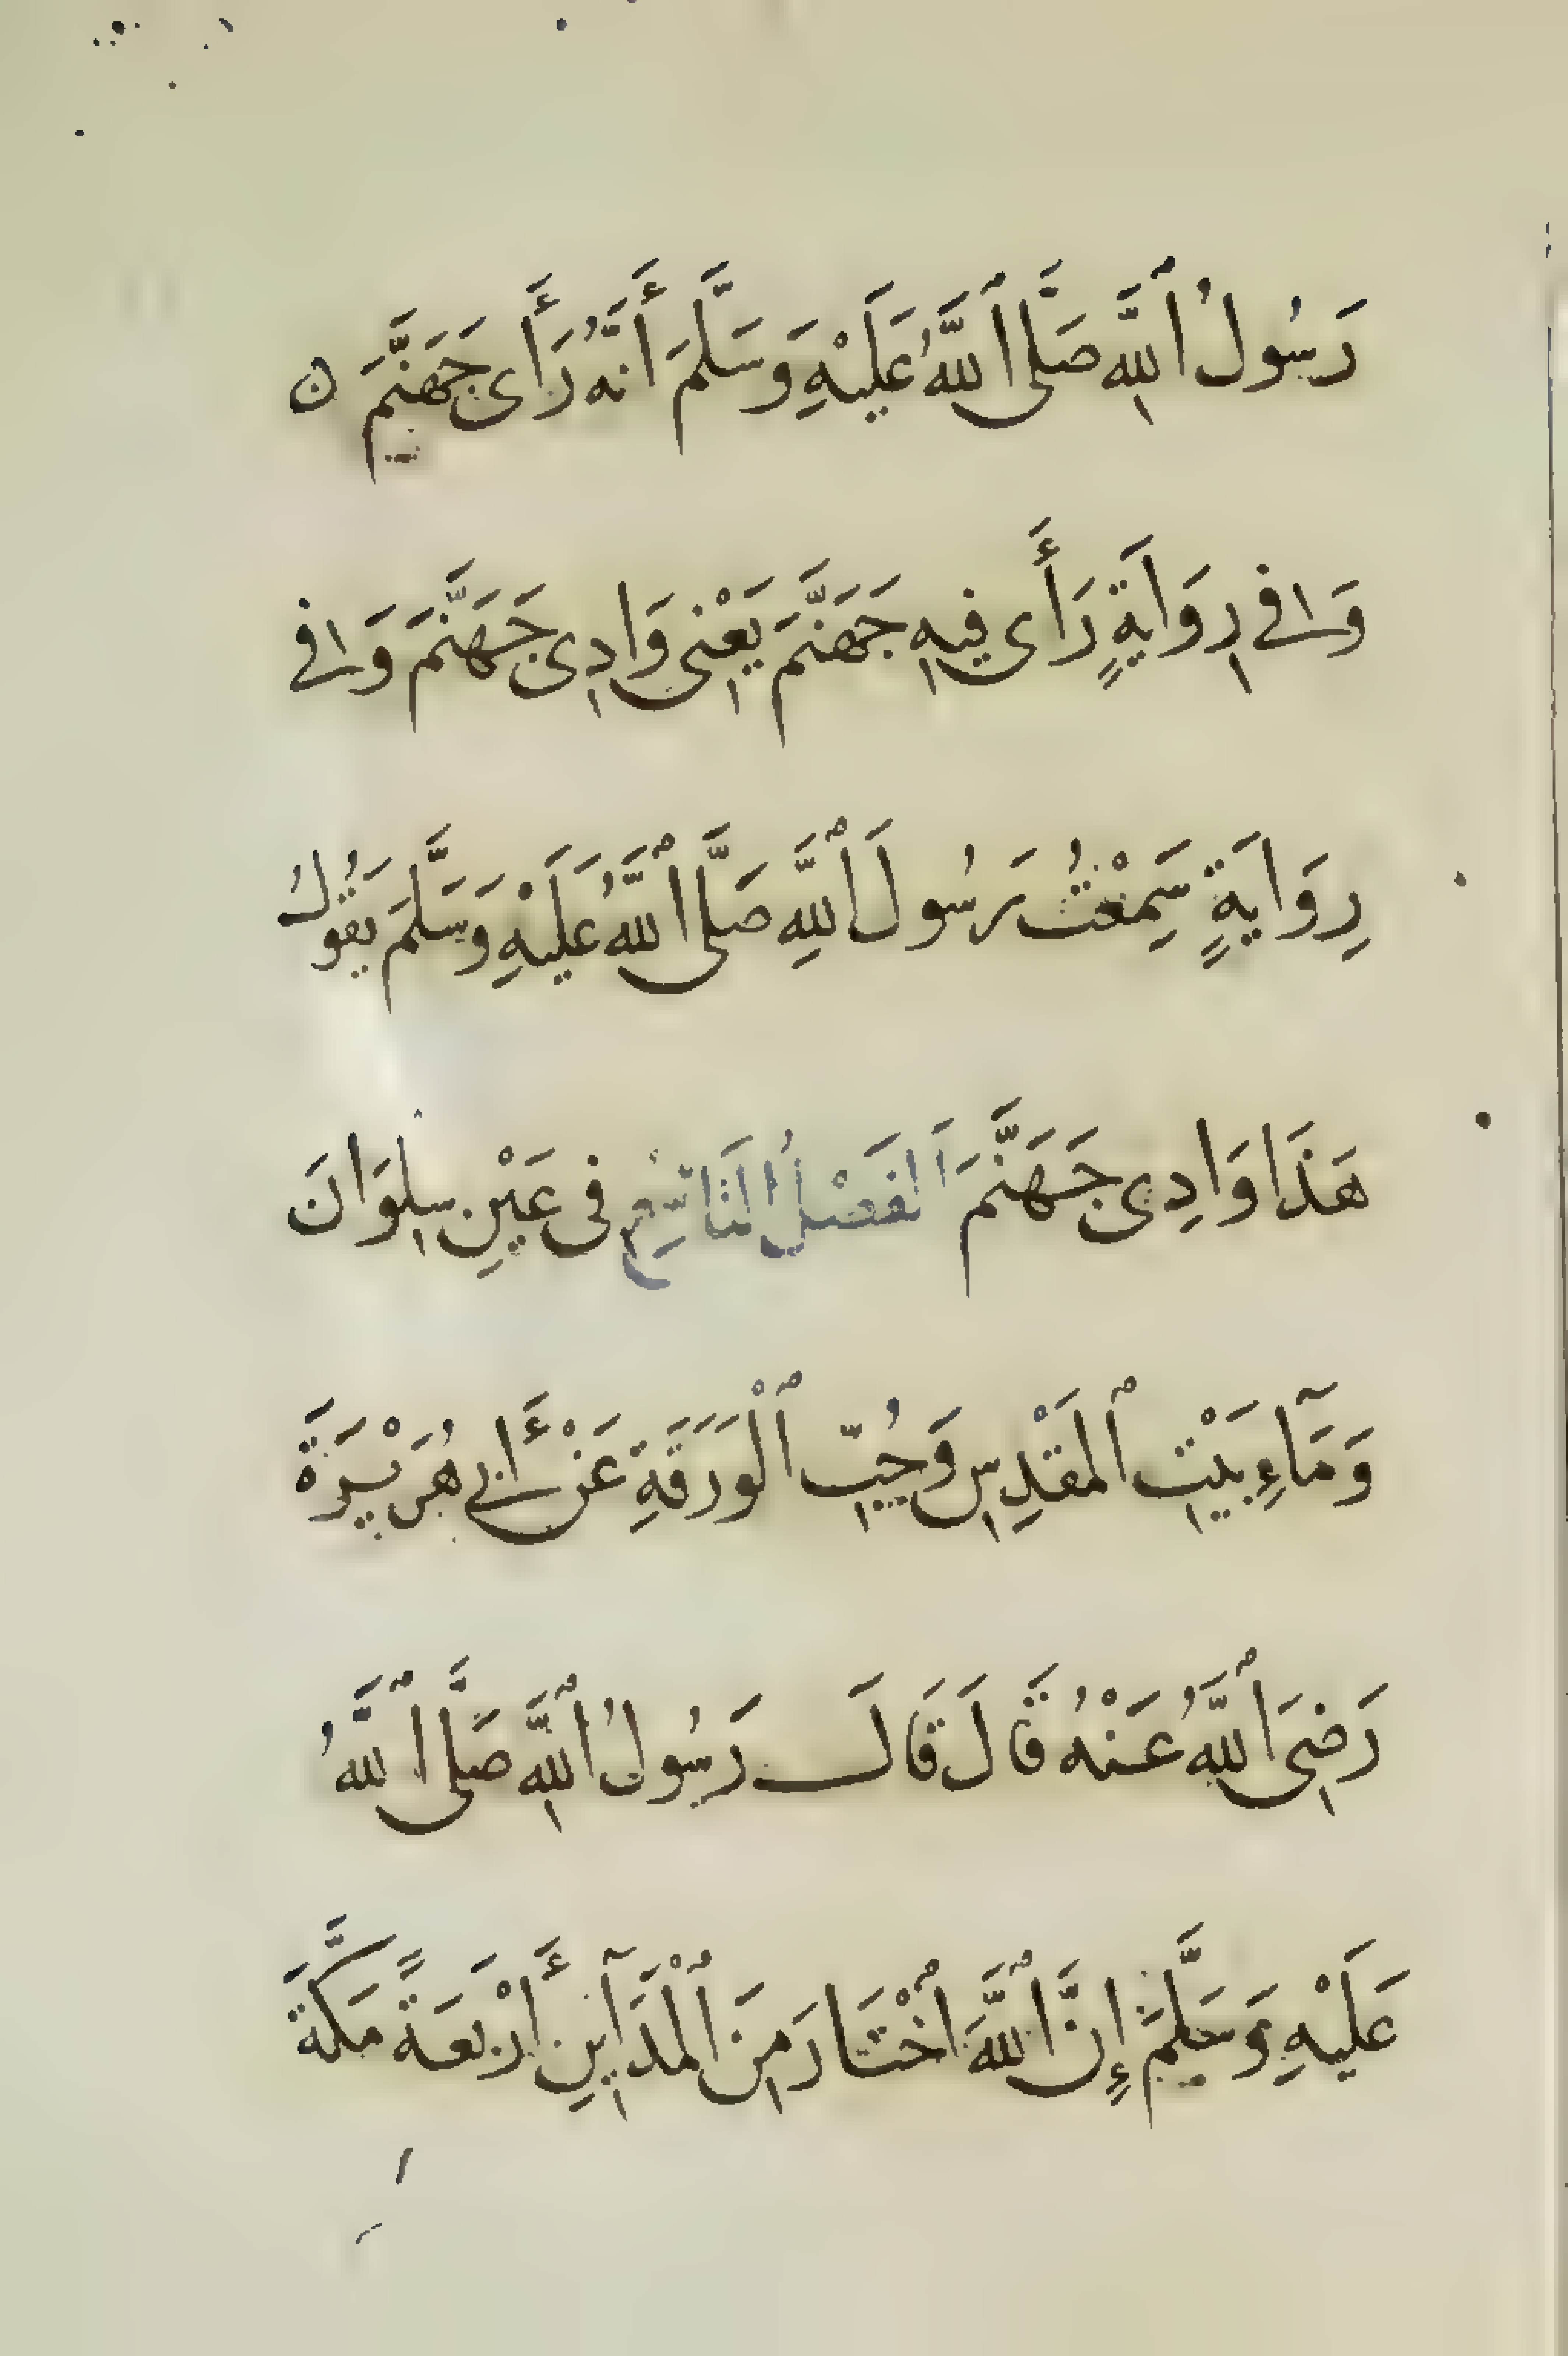 رَسُولُ ٱللَّهِ صَلَّى ٱللَّهُ عَلَيْهِ وَسَلَّمَ أَنَّهُ رَأَى جَهَنَّمَ ن
وَفِي رِوَايَةٍ رَأَى فِيهِ جَهَنَّمَ يَعْنِي وَادِي جَهَنَّمَ وَفِي
رِوَايَةٍ سَمِعْتُ رَسُولَ ٱللَّهِ صَلَّى ٱللَّهُ عَلَيْهِ وَسَلَّمَ يَقُولُ
هَذَا وَادِي جَهَنَّمَ اَلْفَصْلُ التَّاسِعُ فِي عَيْنِ سِلْوَانَ
وَمَآءِ بَيْتِ ٱلْمَقْدِسِ وَجُبِّ ٱلْوَرَقَةِ عَنْ أَبِي هُرَيْرَةَ
رَضِيَ ٱللَّهُ عَنْهُ قَالَ قَالَ رَسُولُ ٱللَّهِ صَلَّى ٱللَّهُ
عَلَيْهِ وَسَلَّمَ إِنَّ ٱللَّهَ ٱخْتَارَ مِنَ ٱلْمَدَآيِنِ أَرْبَعَةً مَكَّةَ